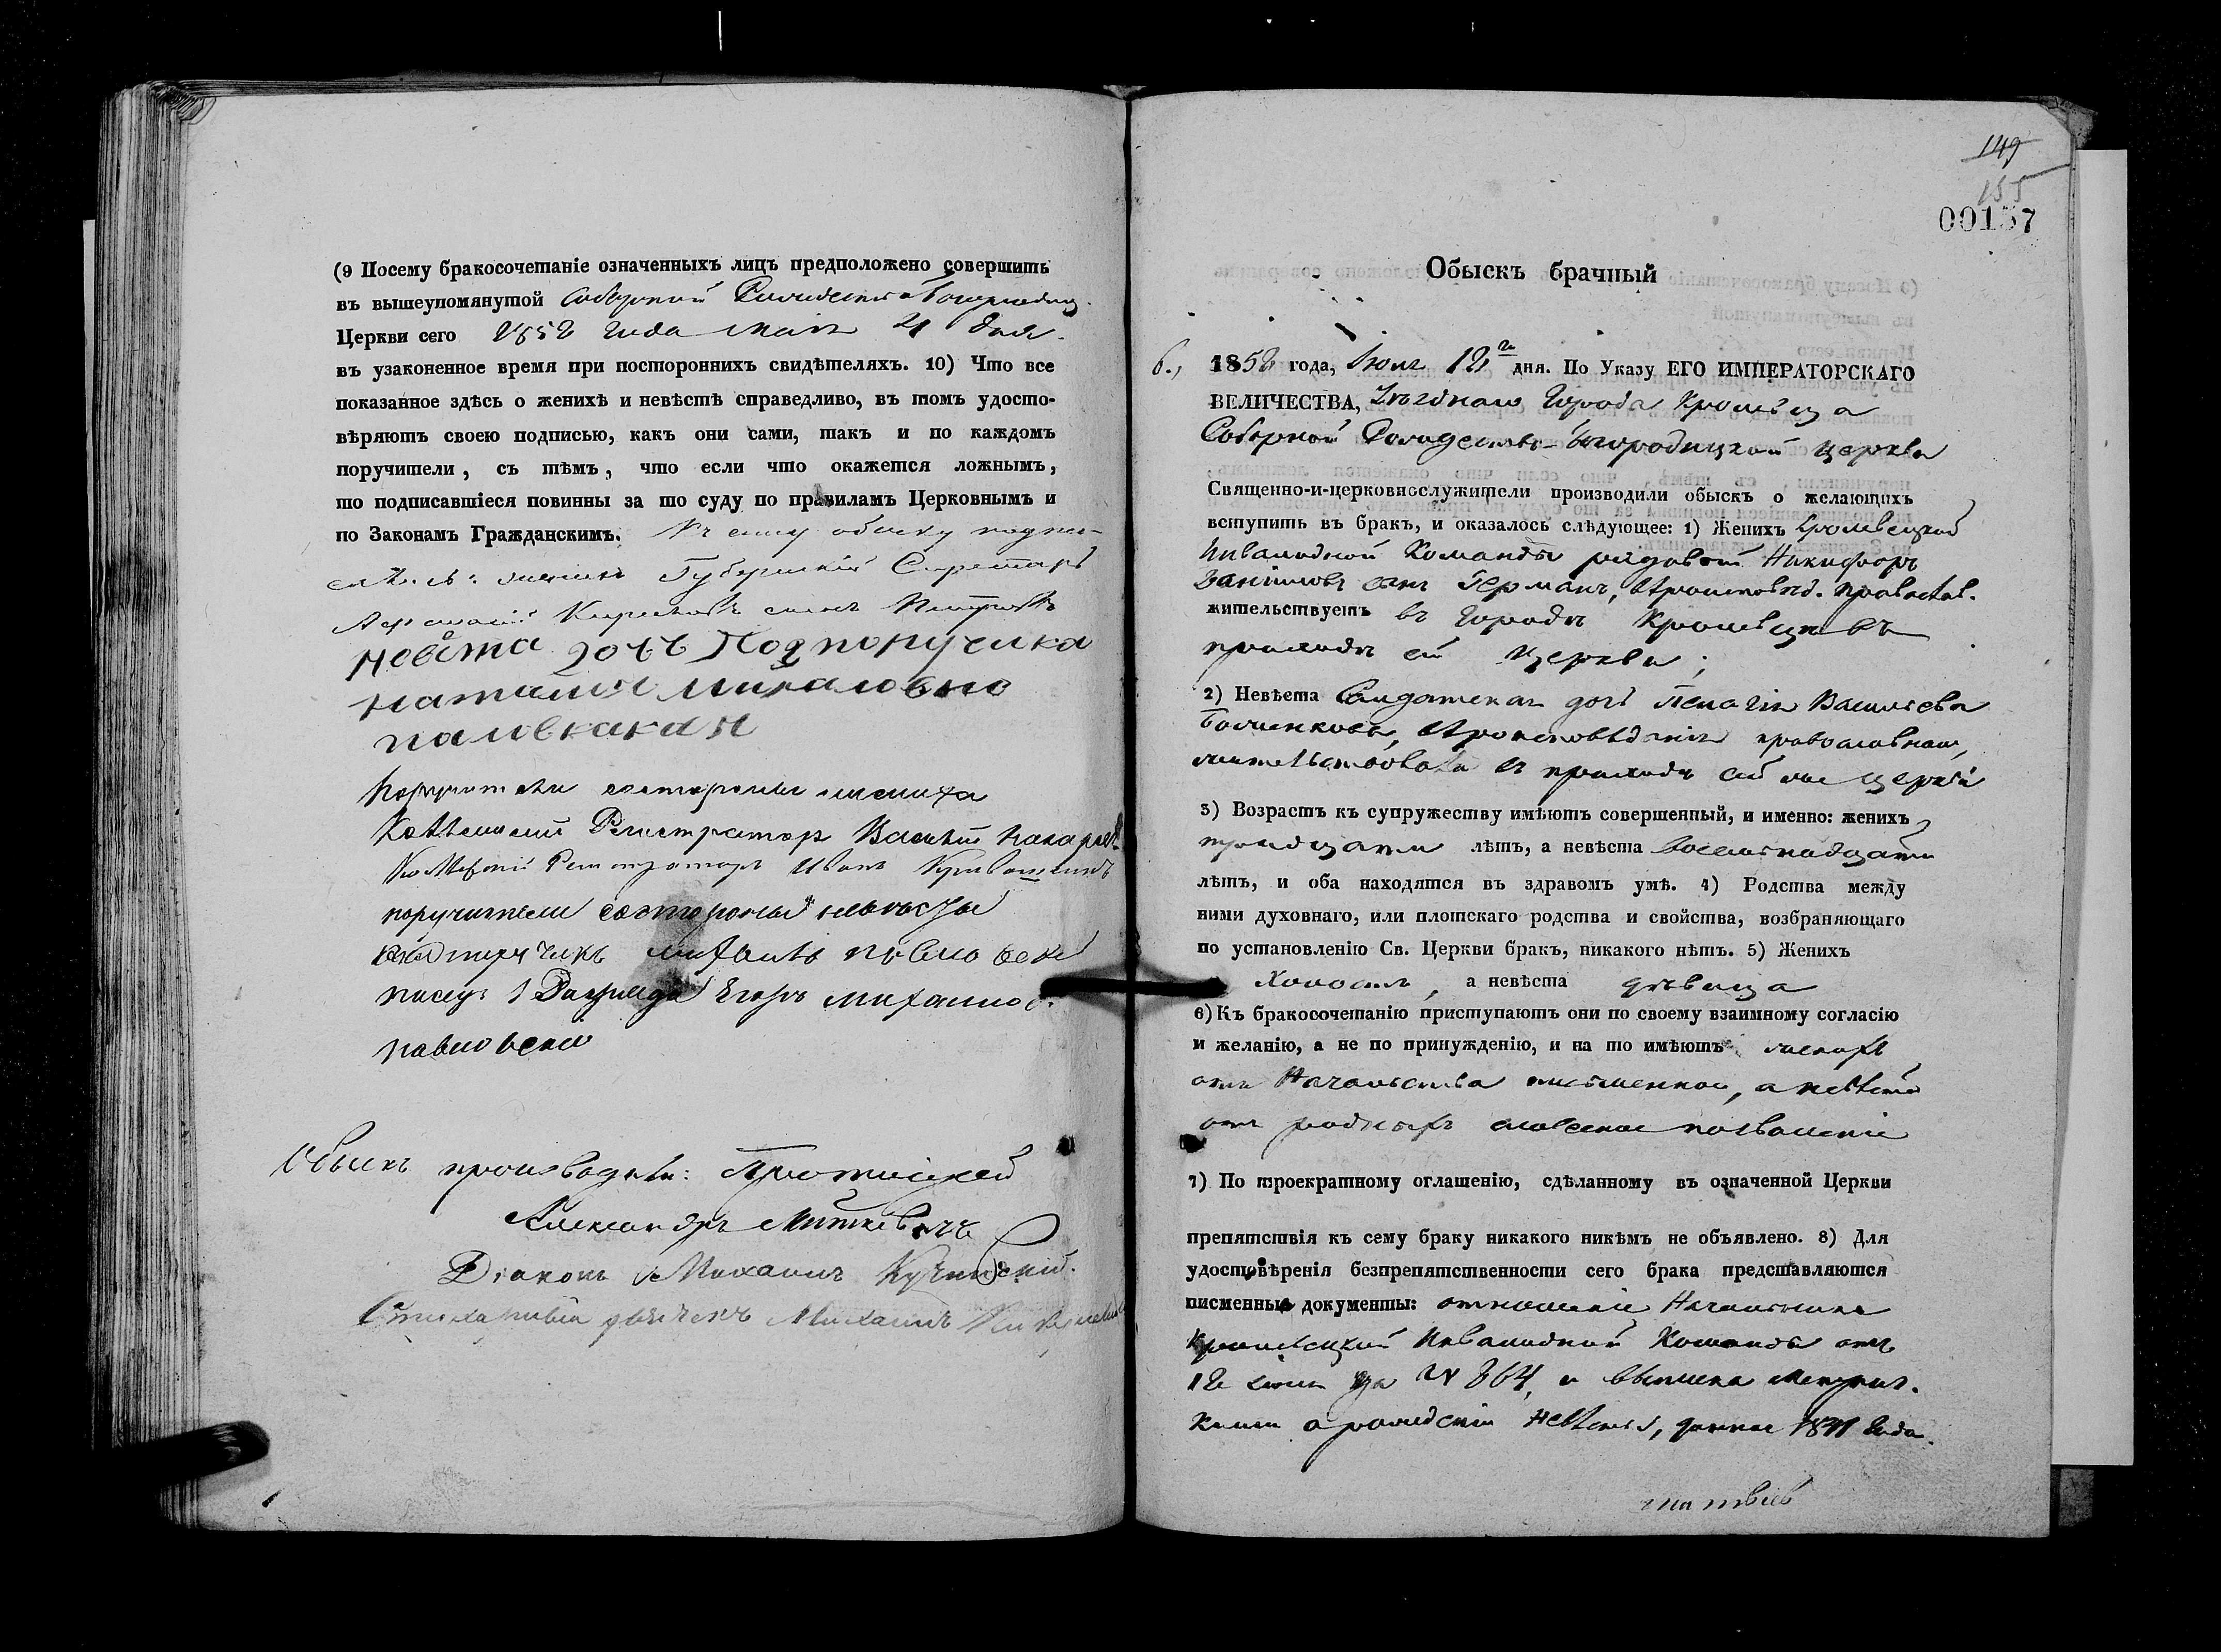 (9 Посему бракосочетаніе означенныхъ лицъ предположено совершить
въ вышеупомянутой Соборной Рождества Богородиц.
Церкви сего 1852 года Маія 21 дня.
въ узаконенное время при постороннихъ свидѣтеляхъ. 10) Что все
показанное здѣсь о женихѣ и невѣстѣ справедливо, въ томъ удосто-
вѣряютъ своею подписью, какъ они сами, такъ и по каждомъ
поручители, съ тѣмъ, что если что окажется ложнымъ,
то подписавшіеся повинны за то суду по правиламъ Церковнымъ и
по Законамъ Гражданскимъ. Къ сему обыску подпи-
женихъ Губернскій Секретарь
сынъ
невѣста дочь Подпоручика
Наталия
Поручители состороны жениха
Коллежскій Регистраторъ Василій
Регистраторъ Иванъ
поручители состороны невѣсты
Егоръ
Обыскъ производили: Протоіерей
Александръ Миткевичъ
Діаконъ Михаилъ
Михаилъ
149
155
00157
Обыскъ брачный
6., 1852 года, Іюля 12го дня. По Указу ЕГО ИМПЕРАТОРСКАГО
ВЕЛИЧЕСТВА, Уѣзднаго Города Кролевца
Соборной Рождество-Богородицкой церкви
Священно-и-церковнослужители производили обыскъ о желающихъ
вступить въ бракъ, и оказалось слѣдующее: 1) Женихъ Кролевецкой
Инвалидной Команды рядовой Никифоръ
сынъ Германъ, вѣроисповѣд. православ.
жительствуетъ въ городѣ Кролевцѣ въ
приходѣ сей церкви;
2) Невѣста Солдатская дочь Пелагія Васильева
вѣроисповѣданія православнаго,
жительствовала въ приходѣ сей же церкви
3) Возрастъ къ супружеству имѣютъ совершенный, и именно: женихъ
тридцати лѣтъ, а невѣста восемьнадцати
лѣтъ, и оба находятся въ здравомъ умѣ. 4) Родства между
ними духовнаго, или плотскаго родства и свойства, возбраняющаго
по установленію Св. Церкви бракъ, никакого нѣтъ. 5) Женихъ
Холостъ, а невѣста дѣвица
6) Къ бракосочетанію приступаютъ они по своему взаимному согласію
и желанію, а не по принужденію, и на то имѣютъ женихъ
отъ Начальства письменное, а невѣста
отъ родныхъ словесное позволеніе
7) По троекратному оглашенію, сдѣланному въ означенной Церкви
препятствія къ сему браку никакого никѣмъ не объявлено. 8) Для
удостовѣренія безпрепятственности сего брака представляются
писменные документы: отношеніе Начальника
Кролевецкой Инвалидной Команды отъ
12 Іюля за № 864, и выписка Метрич.
книги о рожденіи невѣсты, данная года.